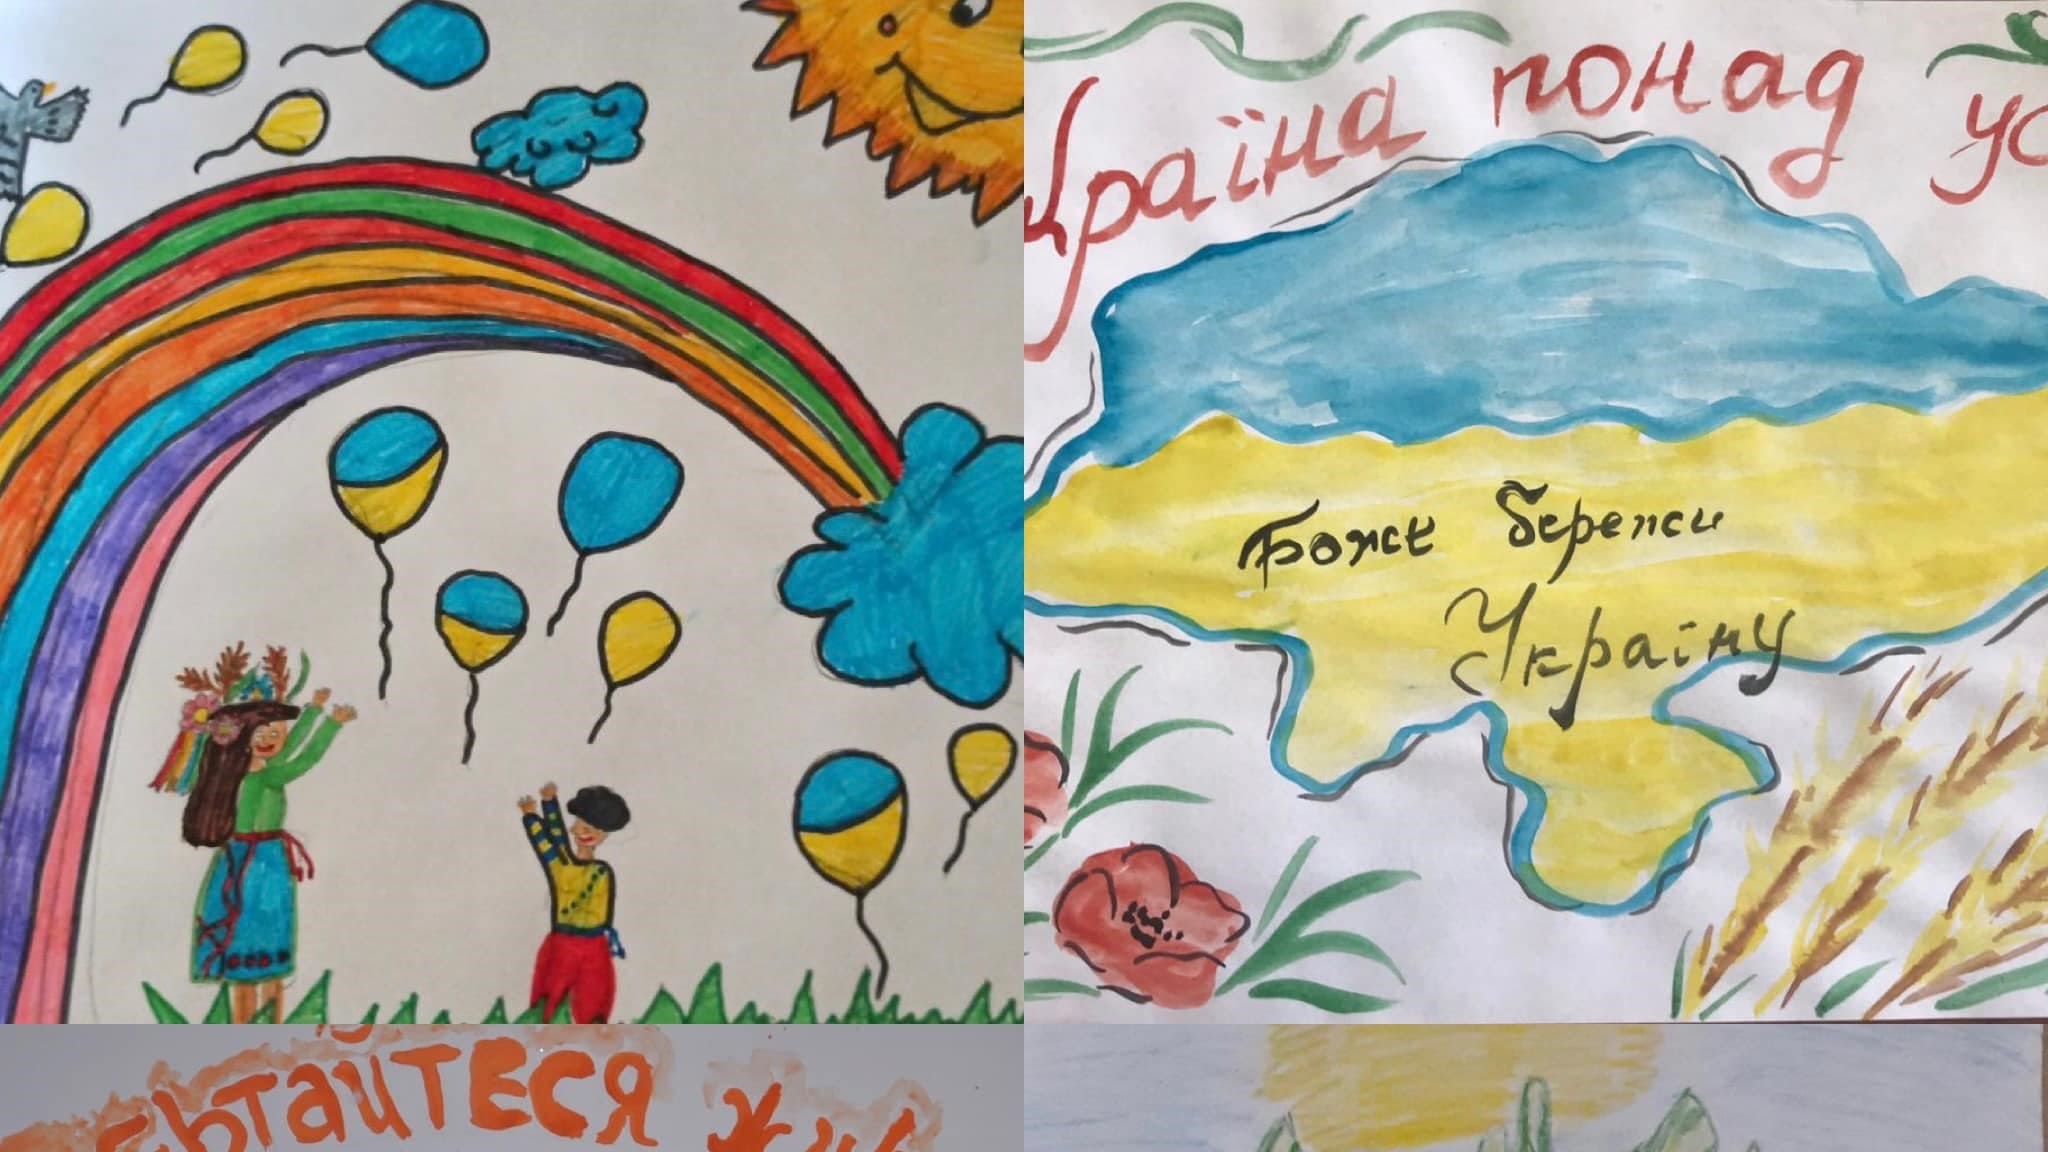 Україна понад ус
Боже бережи
Україну
ртайтеся жи